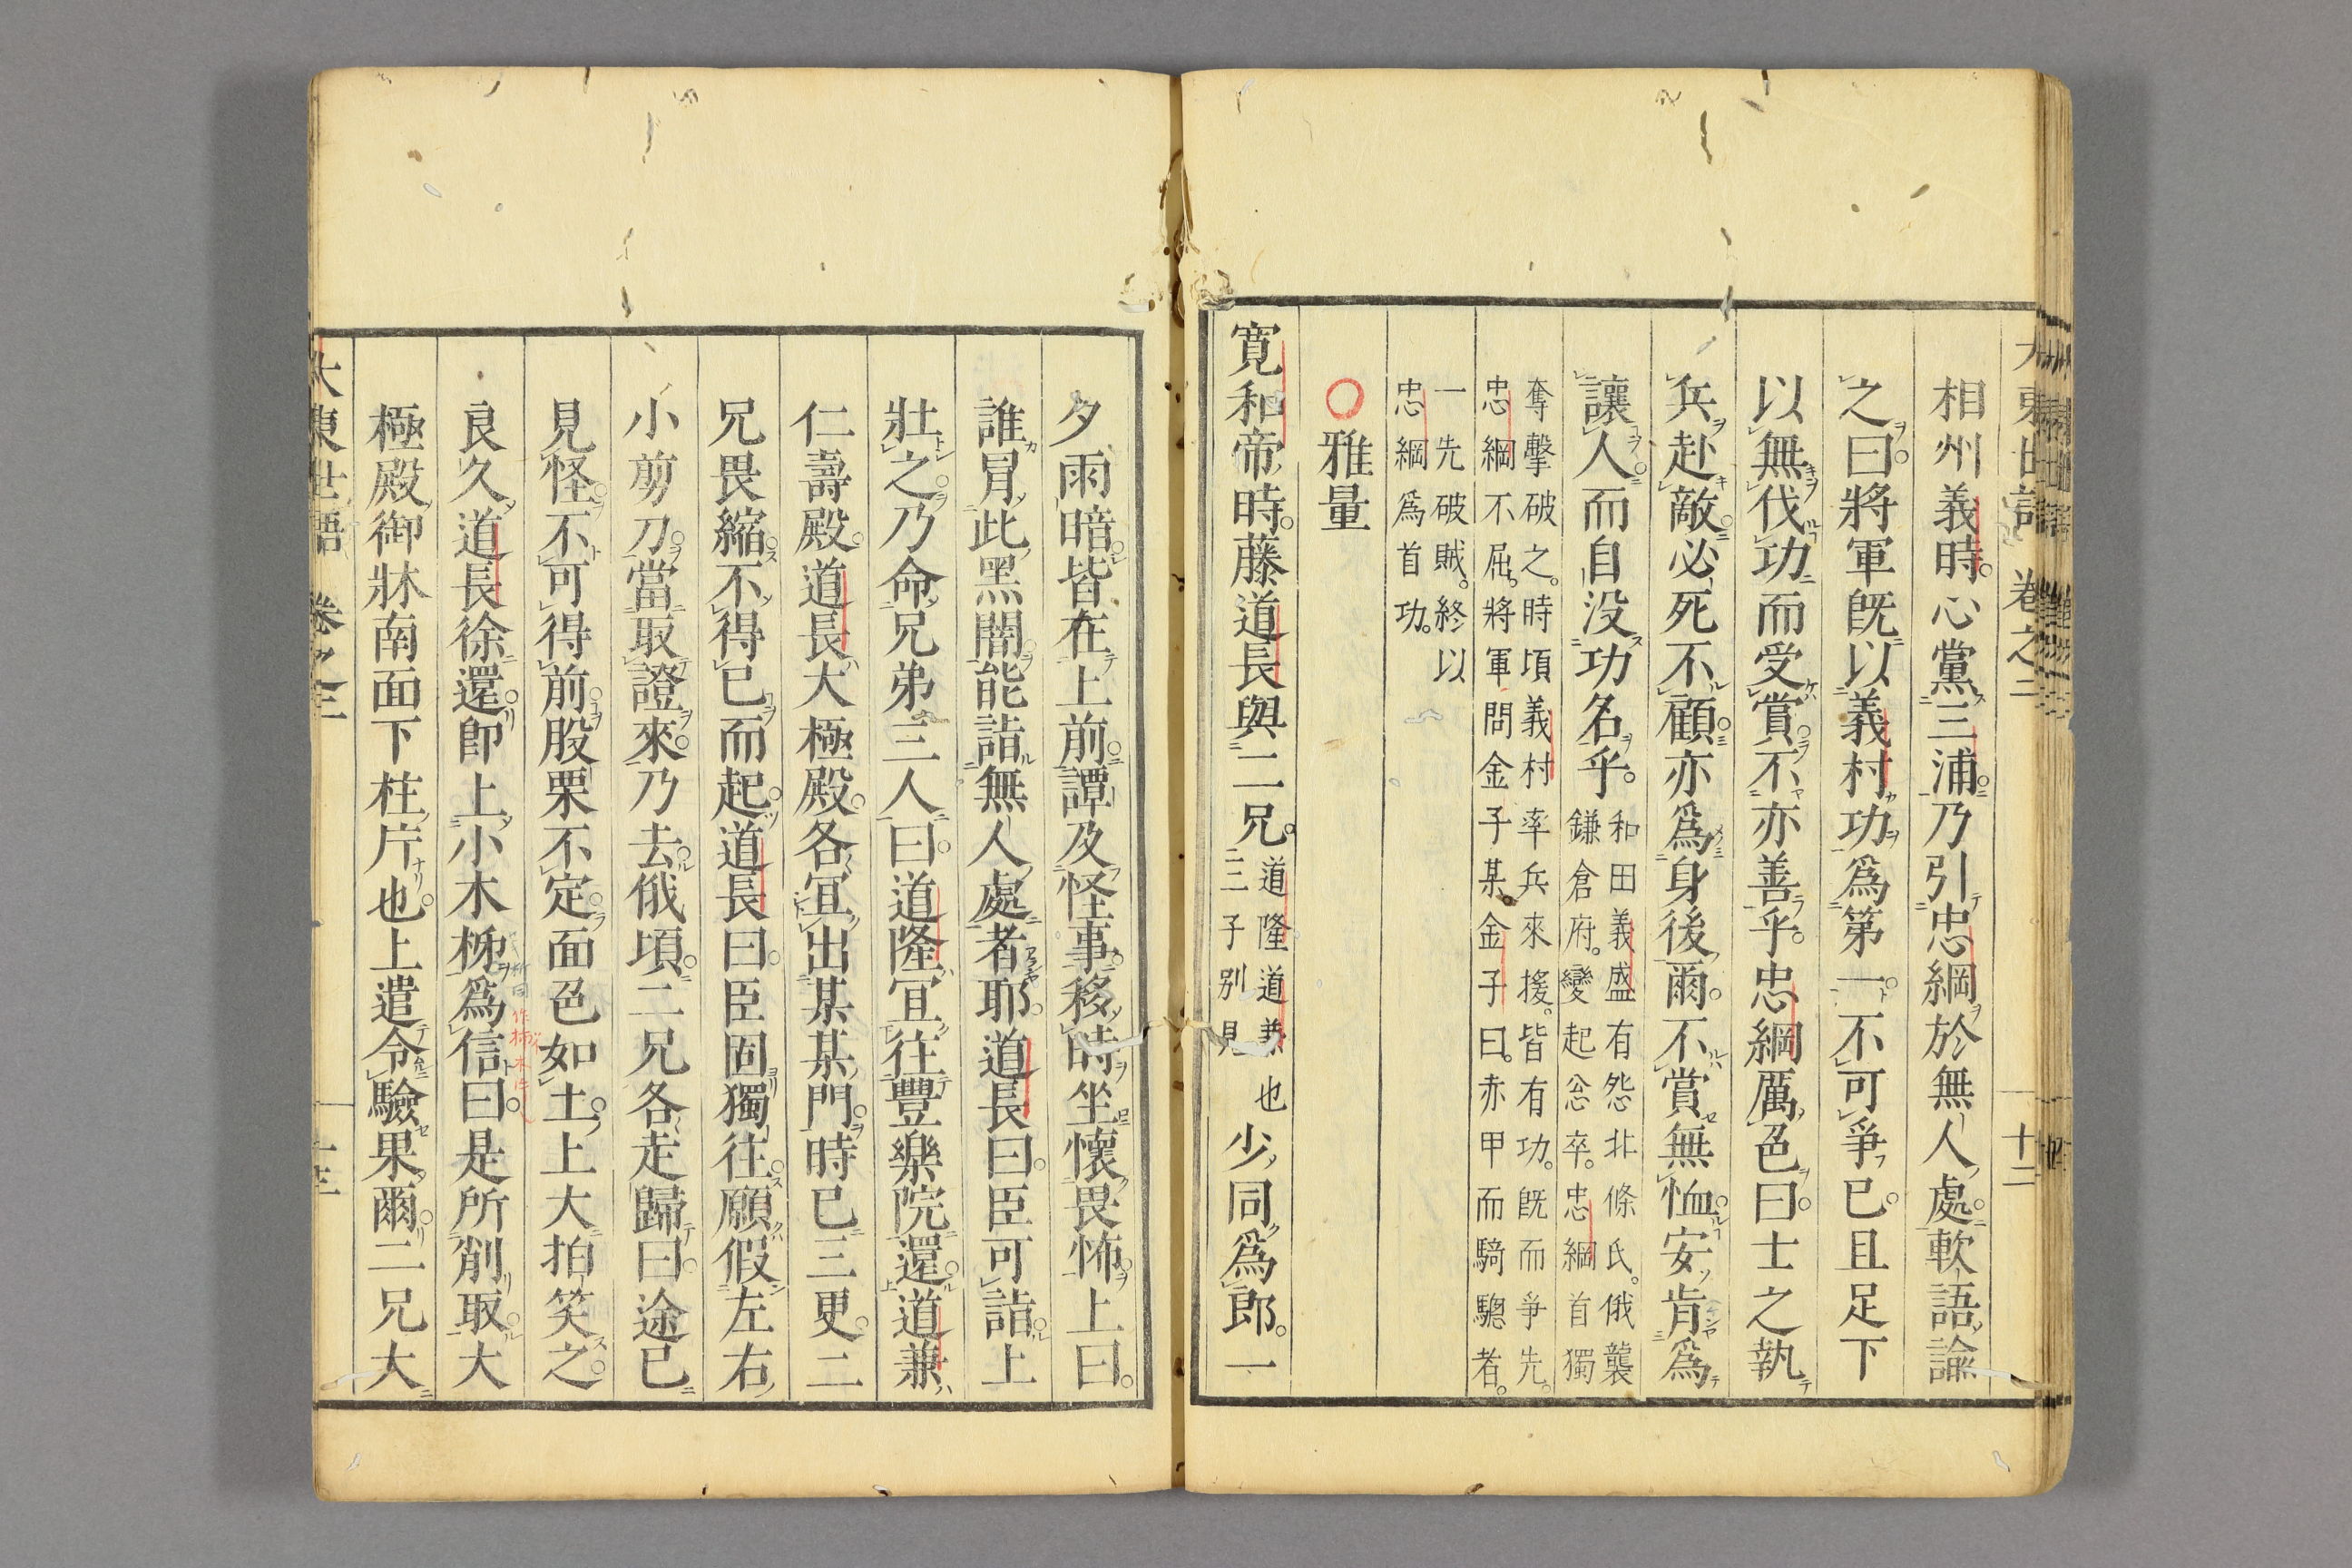 相州義時。心黨三浦。乃引忠綱於無人處。軟語諭
之曰。將軍既以義村功爲第一。不可爭已。且足下
以無伐功而受賞。不亦善乎。忠綱厲色曰。士之執
兵赴敵。必死不顧。亦爲身後爾。不賞無恤。安肯爲
讓人。而自没功名乎。
和田義盛有怨北條氏。俄襲
鎌倉府。變起忩卒。忠綱首獨
奪擊破之。時頃義村率兵來援。皆有功。既而爭先。
忠綱不屈。將軍問金子某。金子曰。赤甲而騎驄者。
一先破賊。終以
忠綱爲首功。
○雅量
寛和帝時。藤道長與二兄。
道隆道兼也
二子別見
少同爲郎。一
夕雨暗。皆在上前。譚及怪事。移時坐懷畏怖。上曰。
誰冐此黑闇。能詣無人處者耶。道長曰。臣可詣。上
壯之。乃命兄弟三人曰。道隆冝往豐樂院還。道兼
仁壽殿。道長大極殿。各冝出某某門。時已三更。二
兄畏縮。不得已而起。道長曰。臣固獨往。願假左右
小剪刀。當取證來。乃去。俄頃。二兄各走歸曰。途已
見怪。不可得前。股栗不定。面色如土。上大拍笑之。
良久道長徐還。即上小木柹爲信曰。是所削取大
極殿御牀南面下柱片也。上遣令驗果爾。二兄大
大東世語 卷之二
十二
大東世語 卷之二
十三